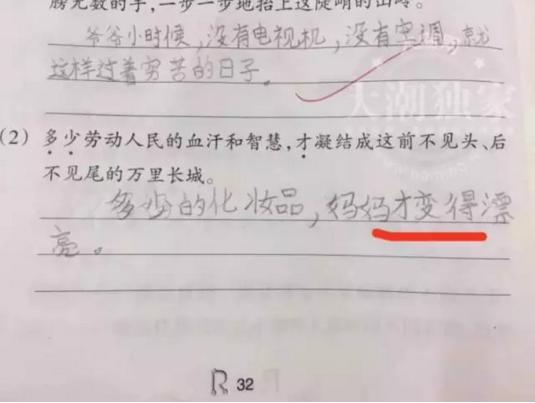 膀无数的手,一步一步地抬上这陡峭的山岭。
爷爷小时候,没有电视机,没有空调,就
这样过着穷苦的日子。
大潮独家
(2) 多少劳动人民的血汗和智慧,才凝结成这前不见头、后
不见尾的万里长城。
多少的化妆品,妈妈才变得漂
亮。
R 32